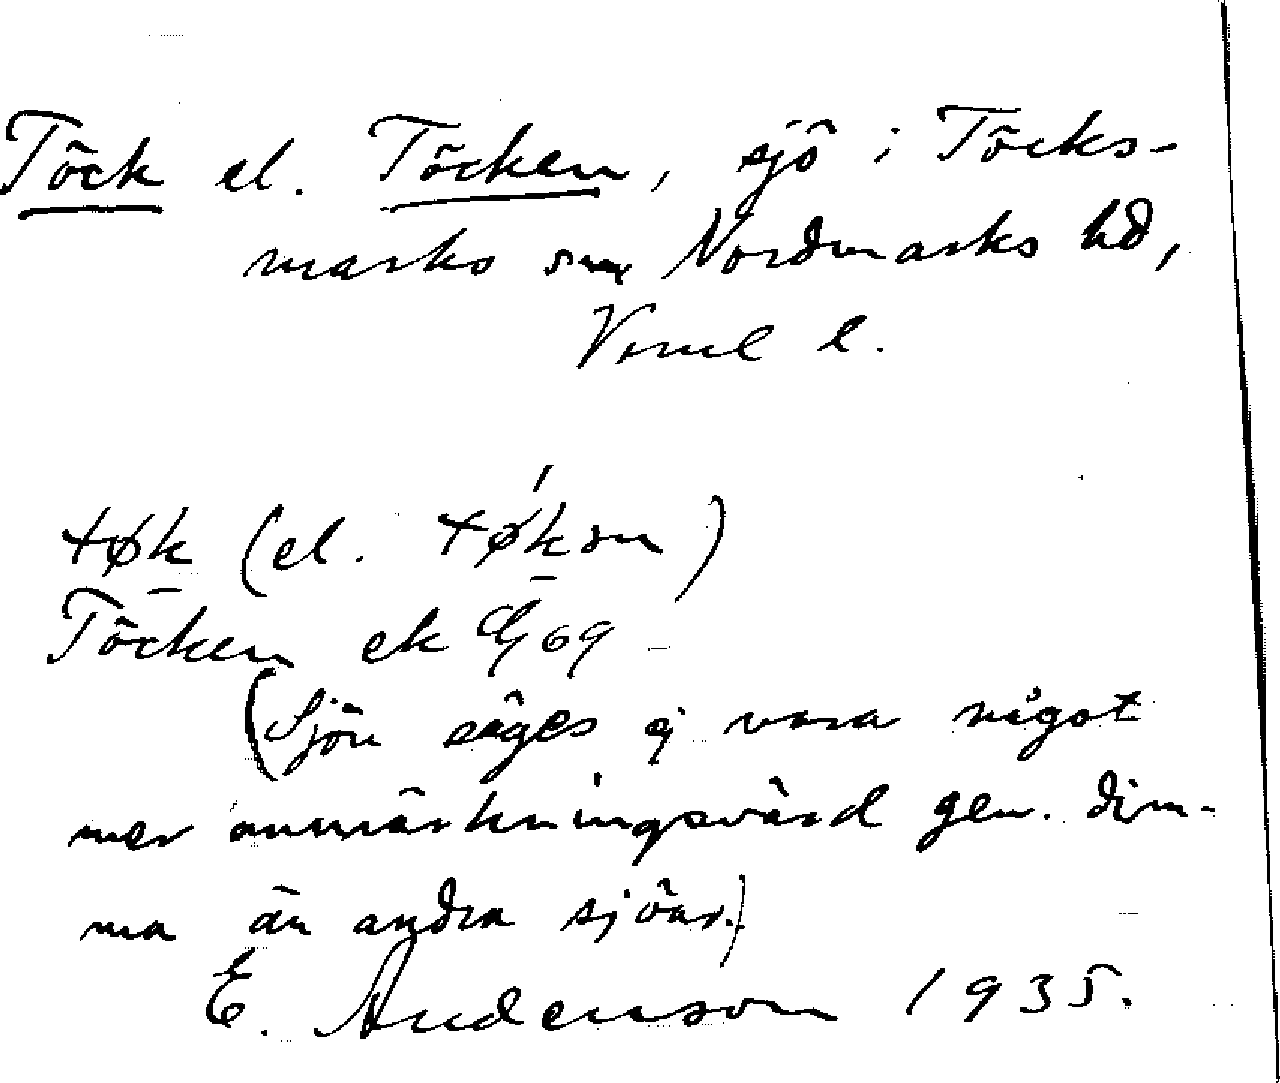 Töck el. Töcken, sjö i Töcks-
marks sn Nordmarks hd,
Verml l.
tøk (el. tøkən)
Töcken ek G 69
(Sjön säges ej vara något
mer anmärkningsvärd gen. dim-
ma än andra sjöar.)
E. Andersson 1935.